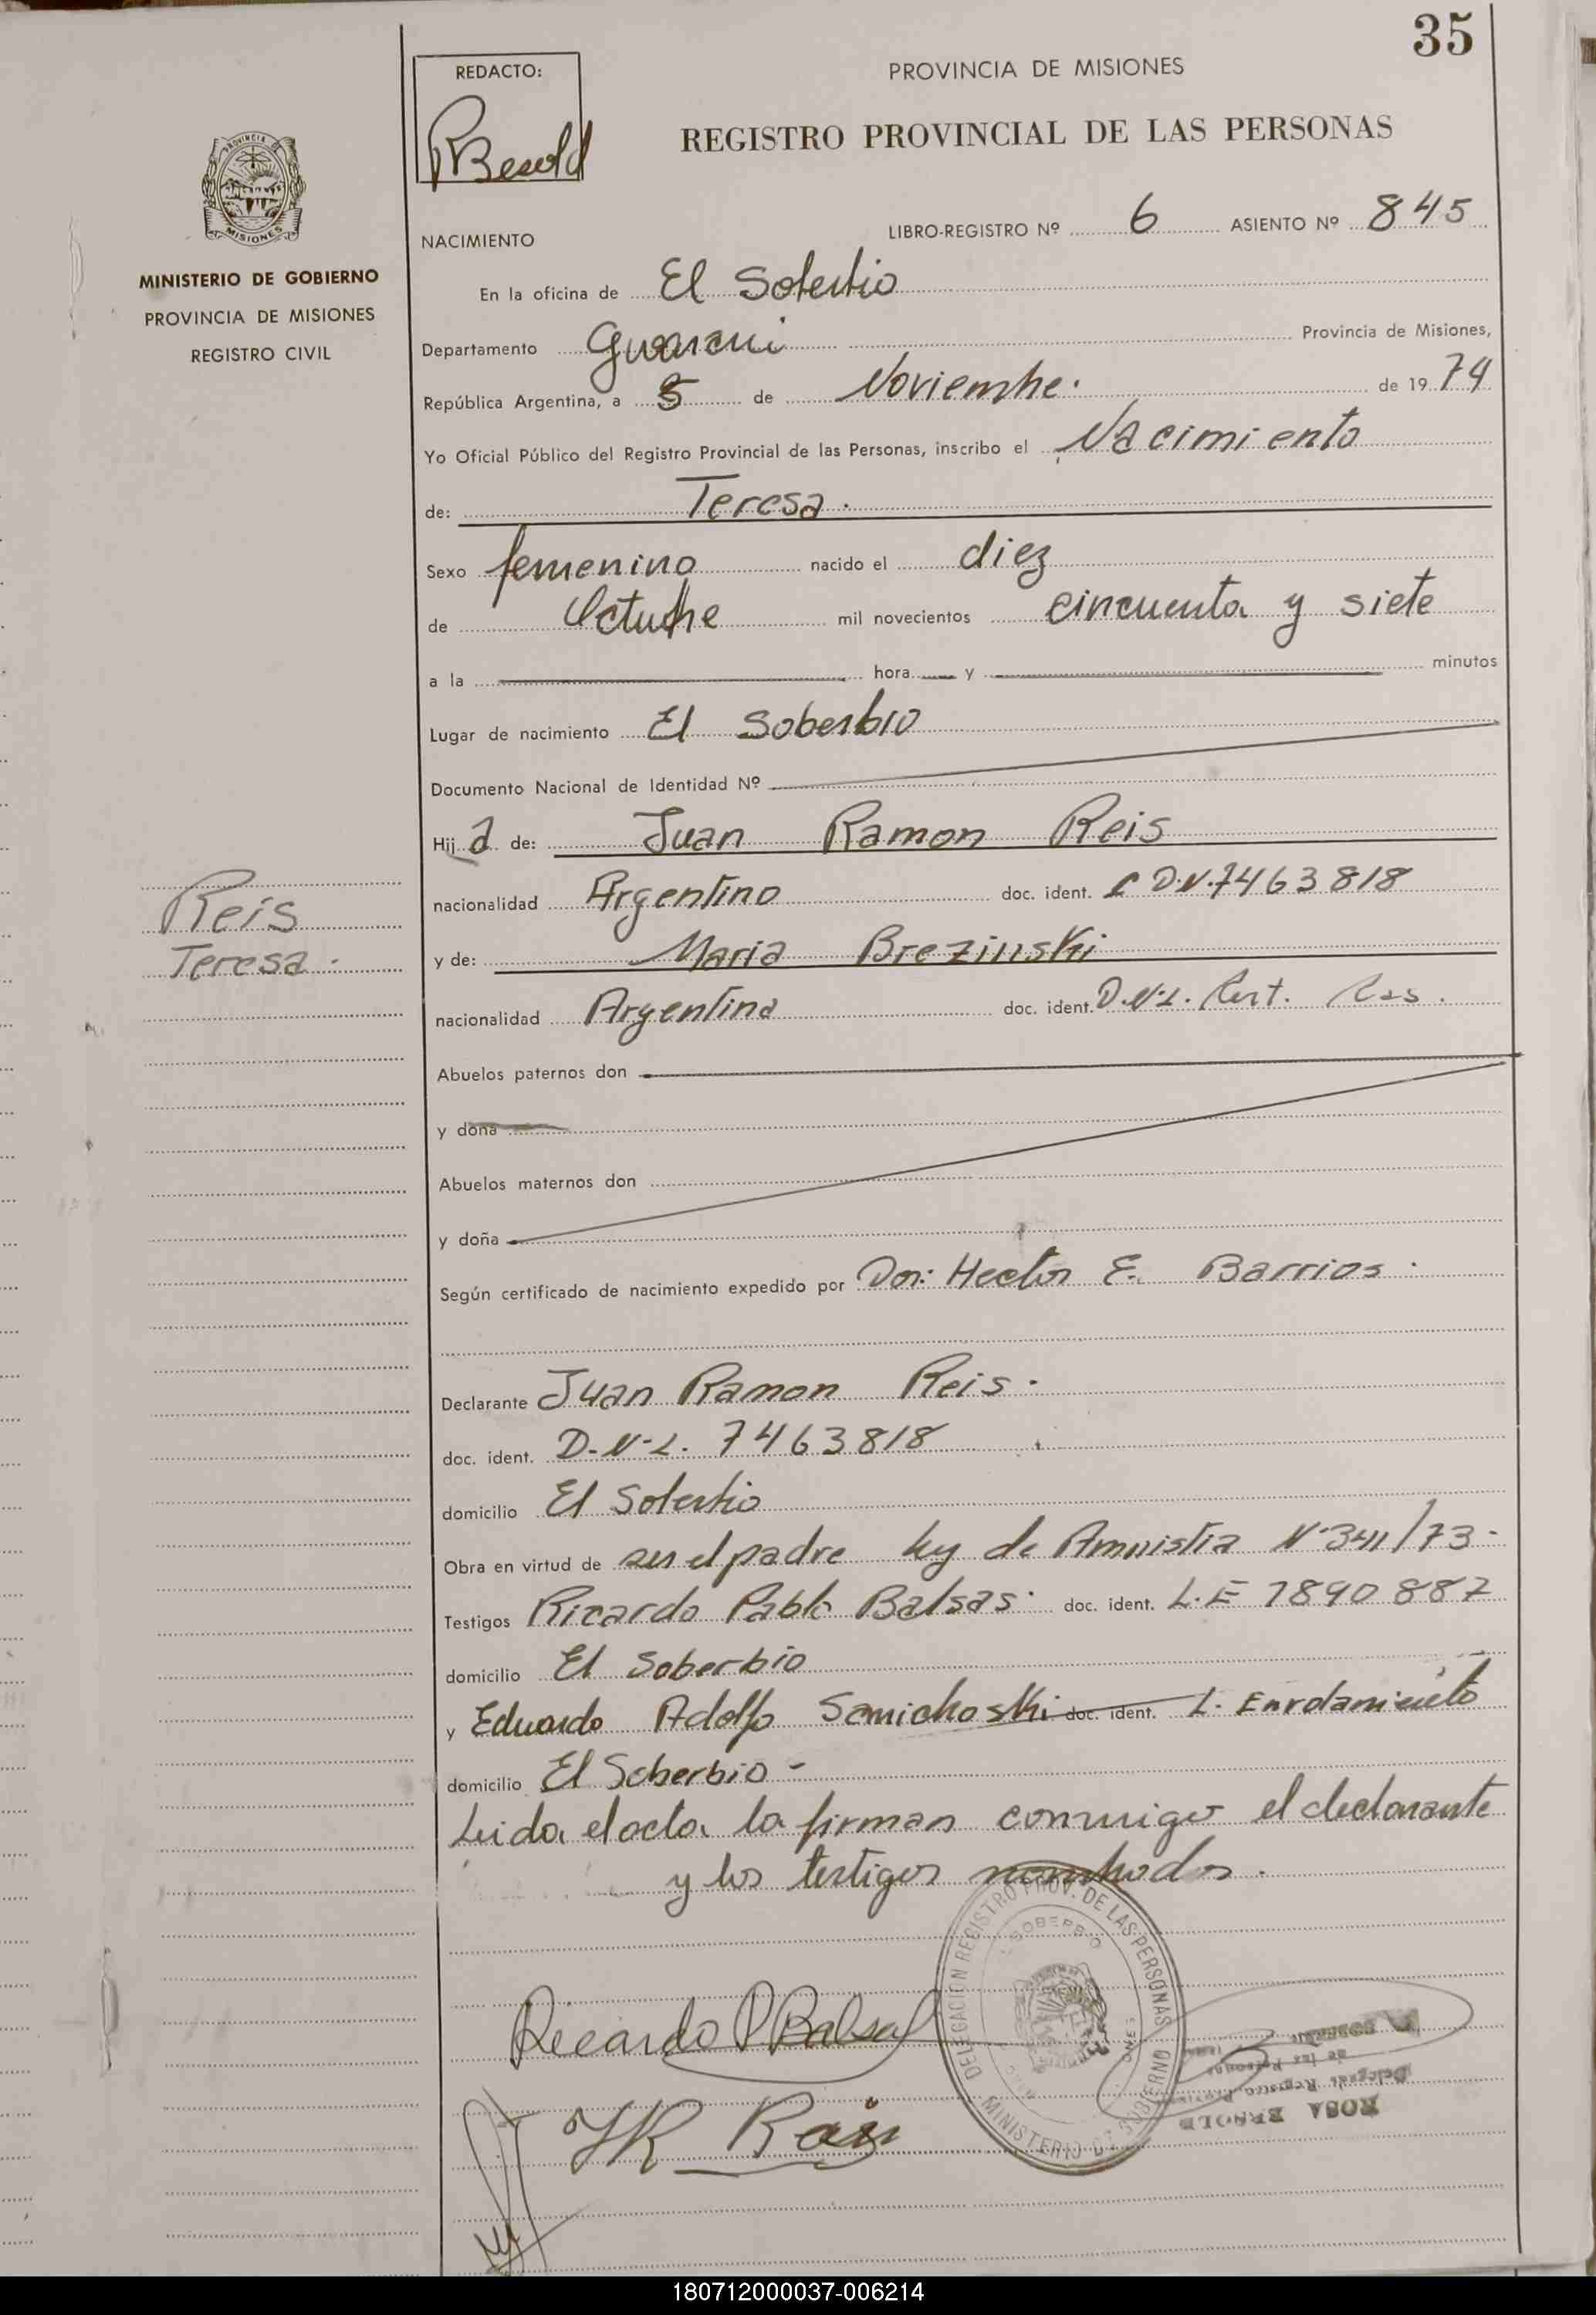 35
REDACTO:
PROVINCIA DE MISIONES
REGISTRO PROVINCIAL DE LAS PERSONAS
PROVINCIA
MISIONES
MINISTERIO DE GOBIERNO
PROVINCIA DE MISIONES
REGISTRO CIVIL
NACIMIENTO
LIBRO-REGISTRO Nº 6 ASIENTO Nº 845
En la oficina de El Soberbio
Departamento Guarani Provincia de Misiones,
República Argentina, a 5 de Noviembre. de 1974
Yo Oficial Público del Registro Provincial de las Personas, inscribo el Nacimiento
de: Teresa.
Sexo femenino nacido el diez
de Octubre mil novecientos cincuenta y siete
a la hora y minutos
Lugar de nacimiento El Soberbio
Documento Nacional de Identidad Nº
Hij a de: Juan Ramon Reis
nacionalidad Argentino doc. ident. D.N. 7463818
Reis
Teresa.
y de: Maria Brezinski
nacionalidad Argentina doc. ident. D.N.I.
Abuelos paternos don
y doña
Abuelos maternos don
y doña
Según certificado de nacimiento expedido por Don: Hector E. Barrios.
Declarante Juan Ramon Reis.
doc. ident. D.N.I. 7463818
domicilio El Soberbio
Obra en virtud de ser el padre ley de Amnistia Nº 3411/73-
Testigos Ricardo Pablo Balsas. doc. ident. L.E 7890887
domicilio El Soberbio
y Eduardo Adolfo doc. ident. L. Enrolamiento
domicilio El Soberbio-
Leida el acta la firman conmigo el declarante
y los testigos nombrados.
DELEGACION REGISTRO PROV. DE LAS PERSONAS
SOBERBIO
MINISTERIO DE GOBIERNO
Ricardo P. Balsas
JR Reis
ROSA
180712000037-006214